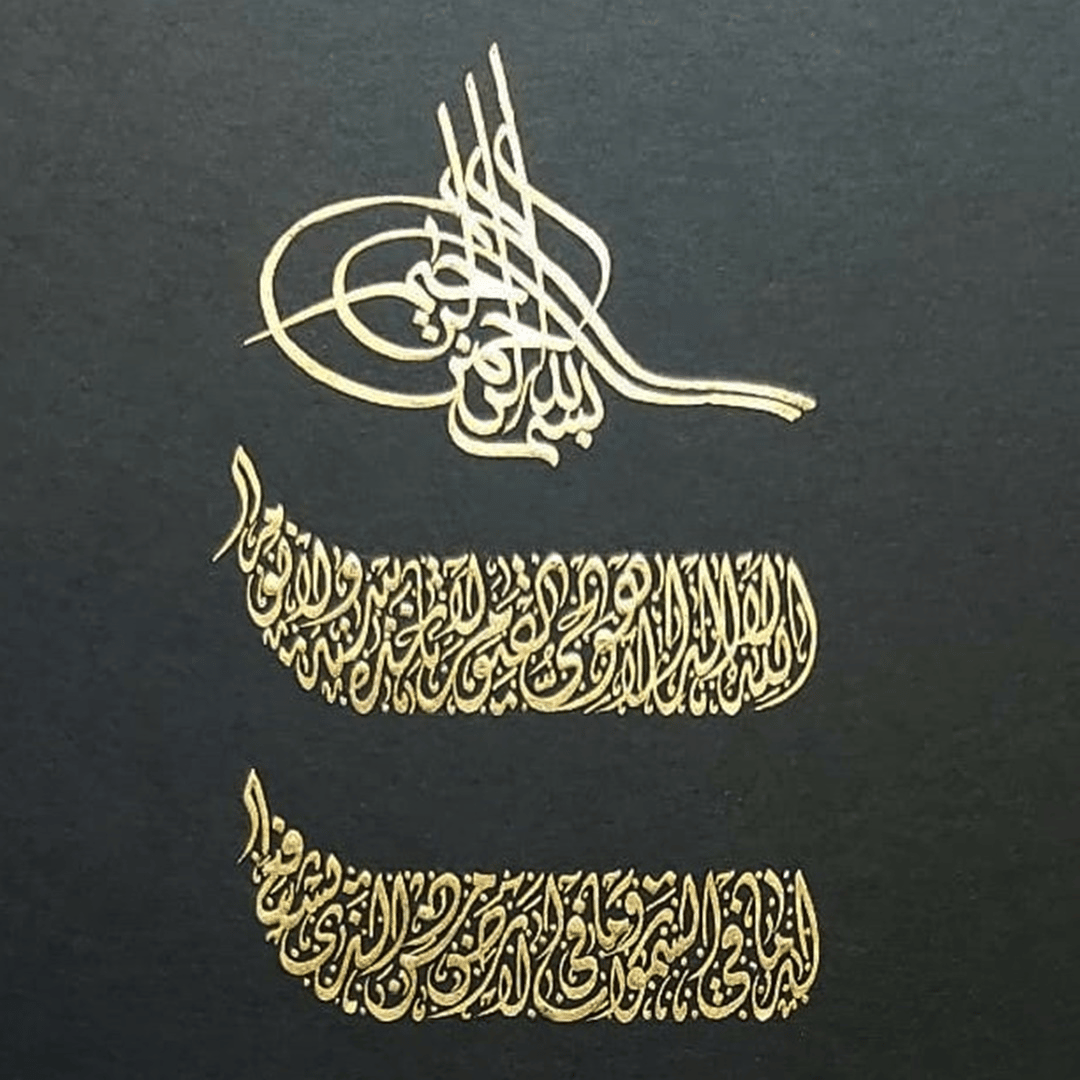 بسم الله الرحمن الرحيم
الله لا اله الا هو الحي القيوم لا تأخذه سنة ولا نوم
له ما في السموات وما في الارض من ذا الذي يشفع